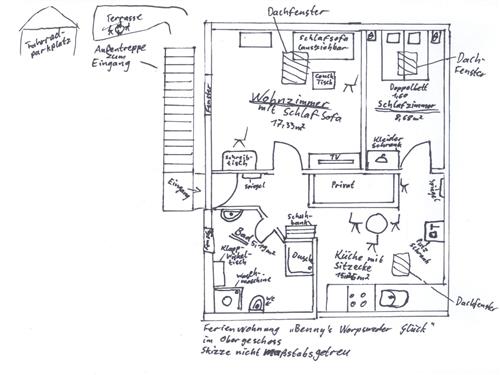 Fahrrad-
parkplatz
Terrasse
Außentreppe
zum
Eingang
Dachfenster
Schlafsofa
(ausziehbar)
Couch
Tisch
Fenster
Wohnzimmer
mit Schlaf-Sofa
17,33m²
Schreib-
tisch
TV
Dach-
Fenster
Doppelbett
1,60
Schlafzimmer
8,68m²
Kleider
schrank
Eingang
Spiegel
Privat
Schuh-
bank
Bad
Klapp-
Wickel-
tisch
Wasch-
maschine
WC
Dusche
Küche mit
Sitzecke
Dachfenster
Ferienwohnung „Benny's Worpsweder Glück"
im Obergeschoss
Skizze nicht maßstabsgetreu